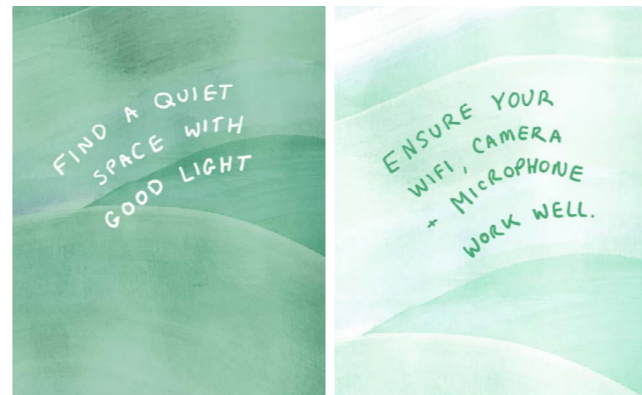 FIND A QUIET
SPACE WITH
GOOD LIGHT
ENSURE YOUR
WIFI, CAMERA
+ MICROPHONE
WORK WELL.